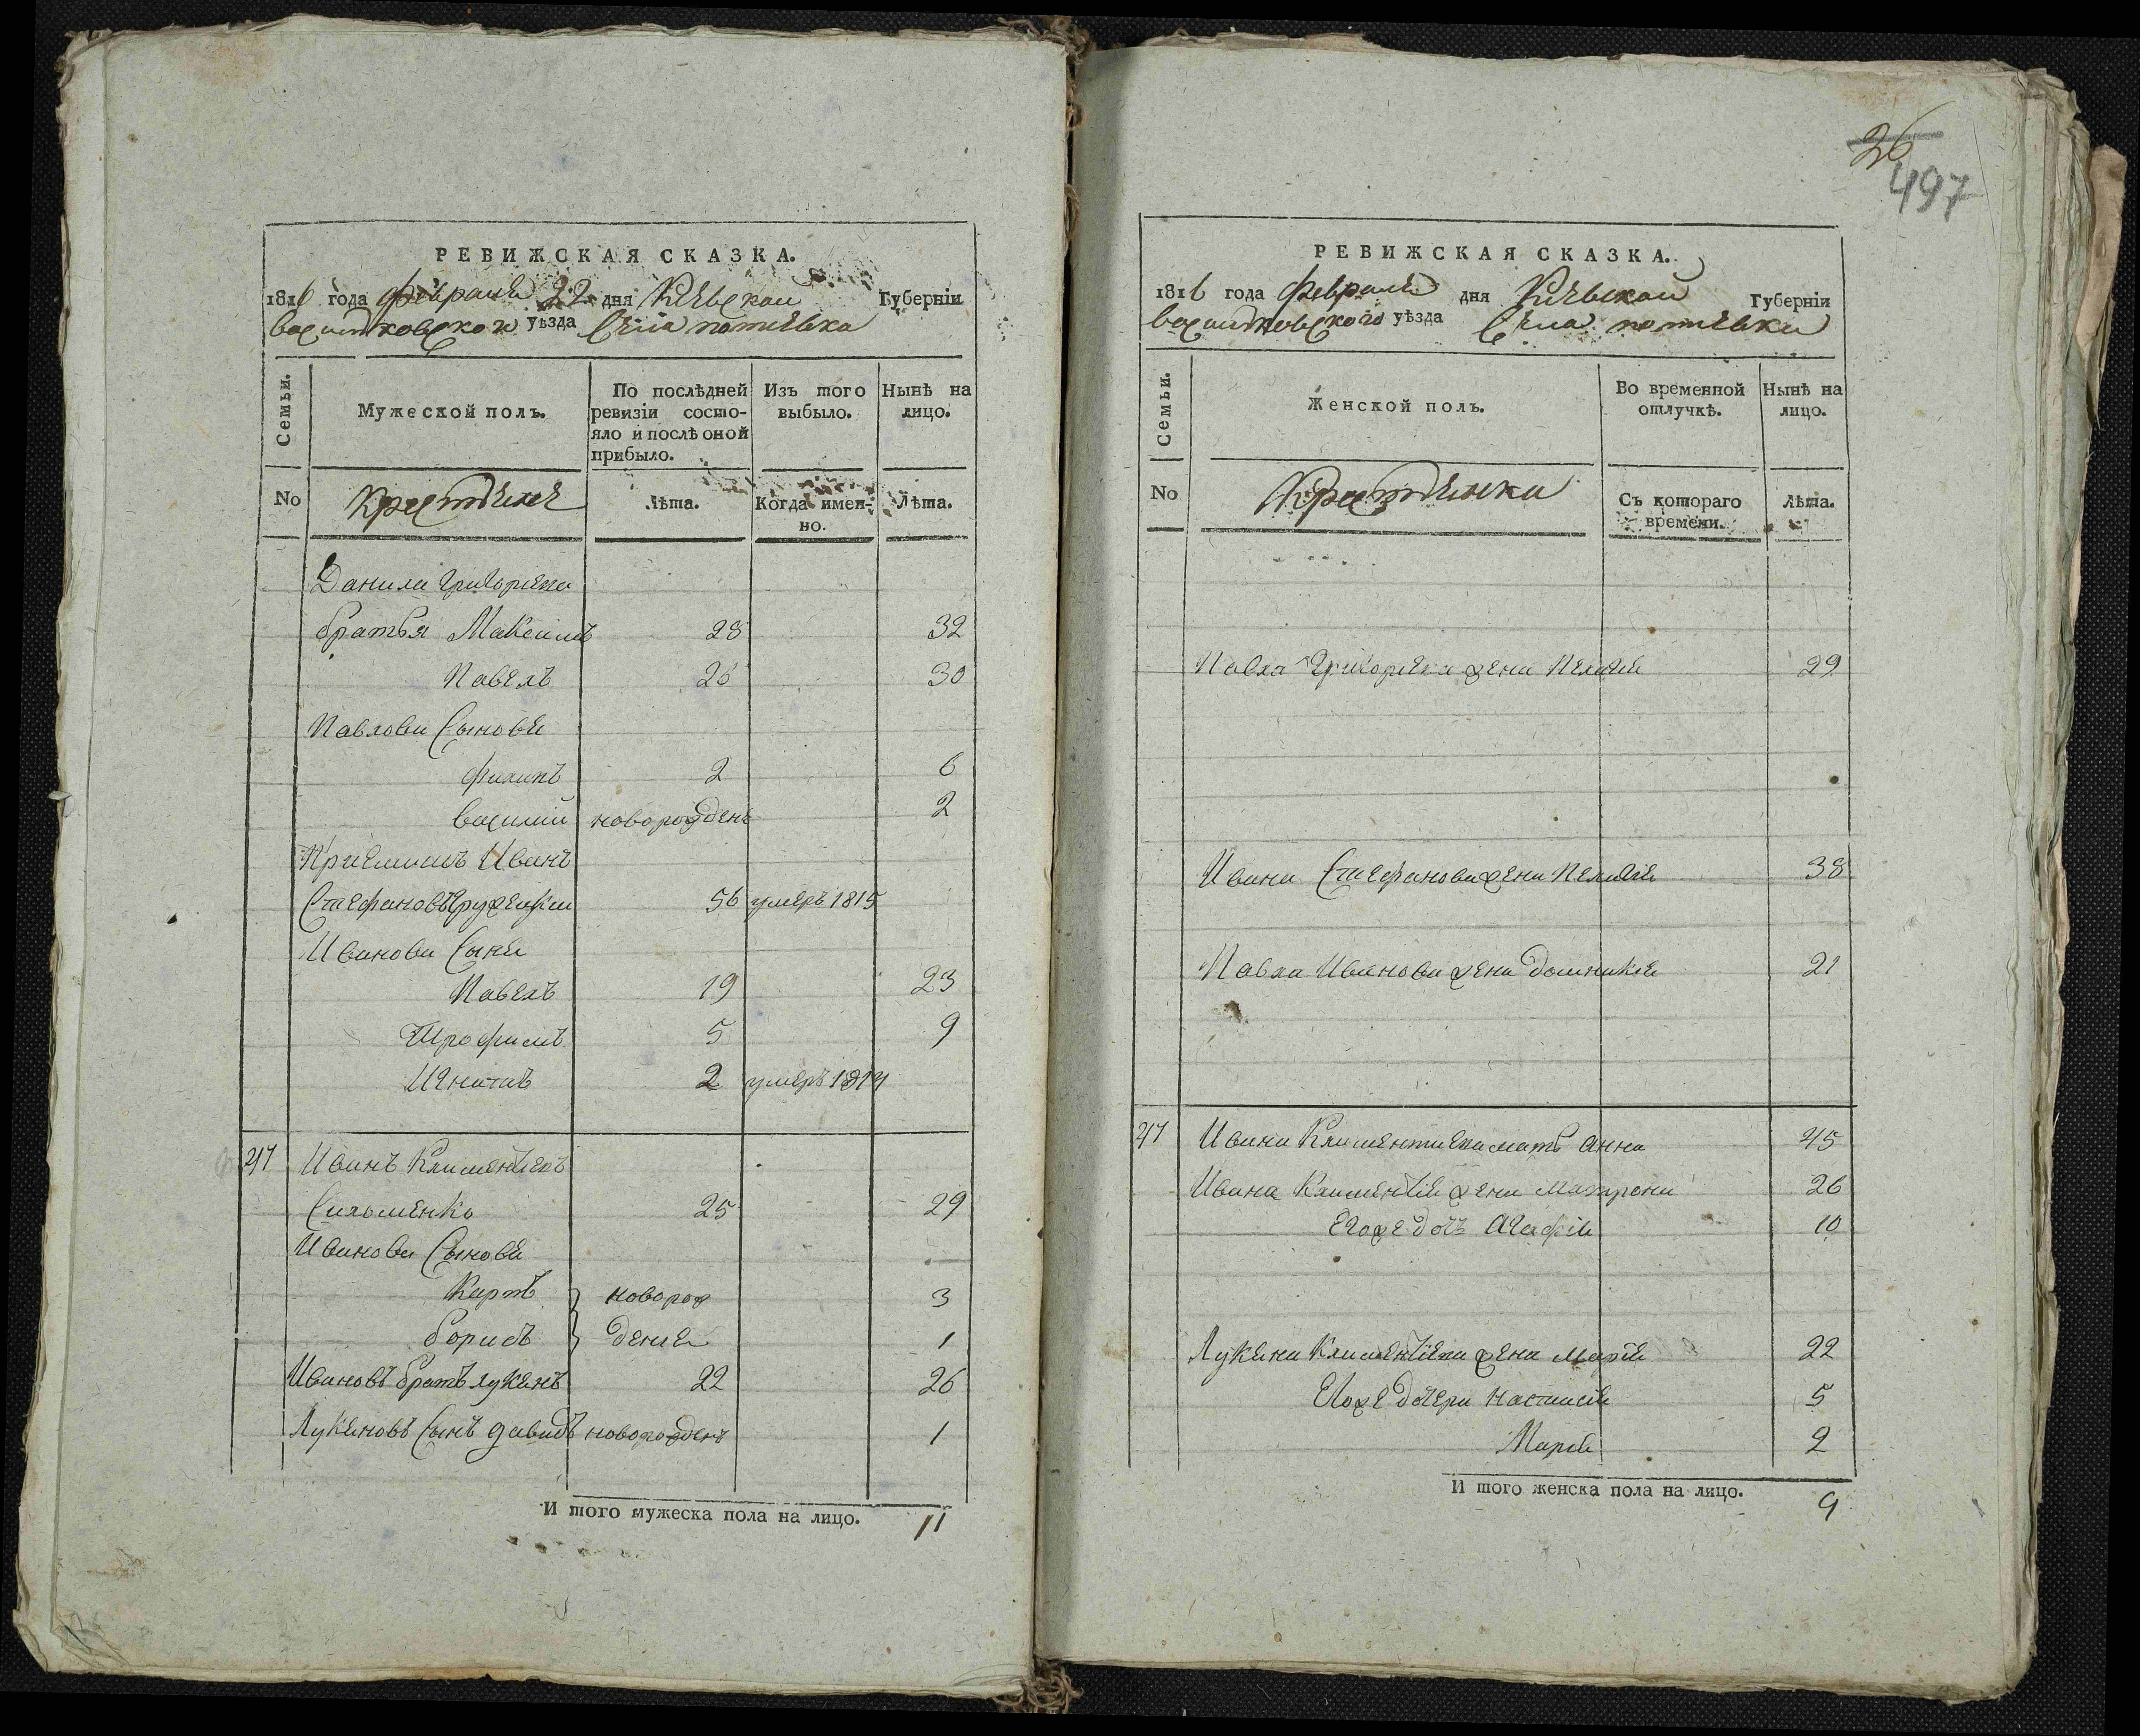 26
497
РЕВИЖСКАЯ СКАЗКА.
1816 года февраля 22 дня Киевской Губерніи
васильковского уѣзда Села потиевка
Семьи.
Мужеской полъ.
По послѣдней ревизіи состояло и послѣ оной прибыло.
Изъ того выбыло.
Нынѣ на лицо.
No
Крестьяне
Лѣта.
Когда именно.
Лѣта.
Данила Григориева
братья Максимъ 28 32
Павелъ 26 30
Павлови Сыновья
филипъ 2 6
василий новорожденъ 2
Приемишъ Иванъ
Стефановъ 56 умеръ 1815
Иванови Сыни
Павелъ 19 23
Трофимъ 5 9
Игнатъ 2 умеръ 1814
47 Иванъ Климентиевъ
Сильченко 25 29
Иванови Сыновя
Карпъ новорож 3
борисъ дение 1
Ивановъ братъ лукянъ 22 26
Лукяновъ Сынъ давидъ новорожденъ 1
И того мужеска пола на лицо. 11
РЕВИЖСКАЯ СКАЗКА.
1816 года февраля дня Киевской Губерніи
васильковского уѣзда Села потиевки
Семьи.
Женской полъ.
Во временной отлучкѣ.
Нынѣ на лицо.
No
Крестьянки
Съ котораго времени.
Лѣта.
Павла Григориева жена Пелагия 29
Ивана Стефанова жена Пелагия 38
Павла Иванова жена домникия 21
47 Ивана Климентиева мать анна 45
Ивана Климентия жена Матрона 26
Егоже дочь Агафія 10
Лукяна Климентиева жена Марія 22
Егоже дочери Настасія 5
Марія 2
И того женска пола на лицо. 9